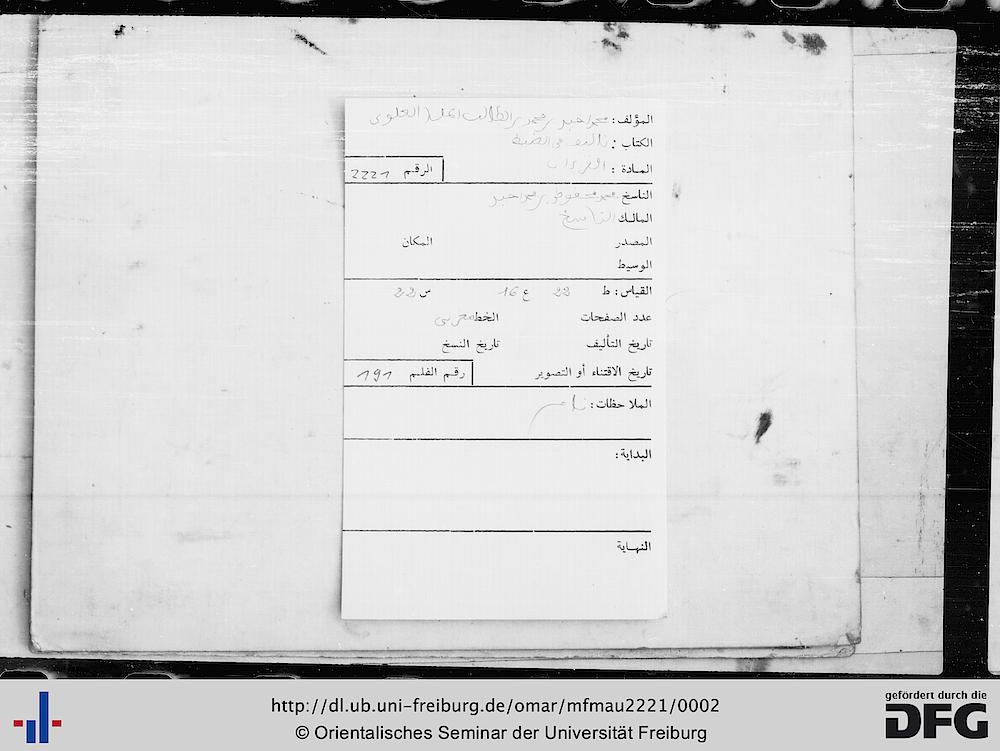 المؤلف: محمد احيد بن محمد بن الطالب العلوى
الكتاب: تاليف فى الضبط
المادة: القرءان
الرقم 2221
الناسخ محمد محفوظ بن محمد احيد
المالك الناسخ
المصدر المكان
الوسيط
القياس: ط 23 ع 16 س 22
عدد الصفحات الخط مغربى
تاريخ التأليف تاريخ النسخ
تاريخ الاقتناء أو التصوير رقم الفلم 191
الملاحظات: تام
البداية:
النهاية
http://dl.ub.uni-freiburg.de/omar/mfmau2221/0002
© Orientalisches Seminar der Universität Freiburg
gefördert durch die
DFG